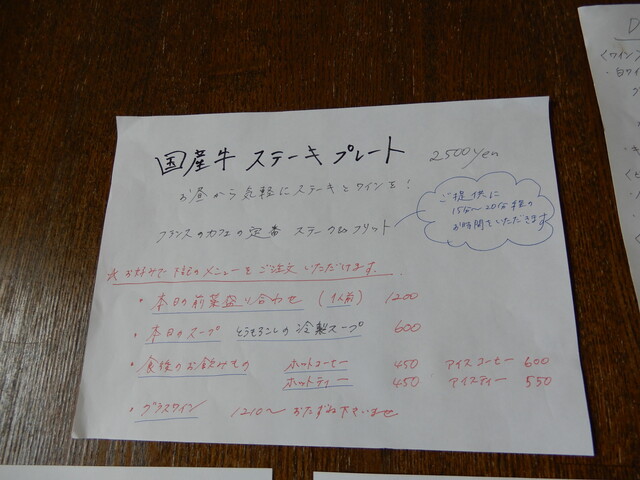 国産牛 ステーキ プレート 2500yen
お昼から 気軽に ステーキとワインを!
フランスのカフェの定番 ステークフリット
ご提供に
15分〜20分程の
お時間をいただきます
☆お好みで 下記のメニューを ご注文 いただけます.
・本日の前菜盛り合わせ (1人前) 1200
・本日のスープ とうもろこしの冷製スープ 600
・食後のお飲みもの ホットコーヒー 450 アイスコーヒー 600
ホットティー 450 アイスティー 550
・グラスワイン 1210〜 おたずね下さいませ
<ワイン>
・白ワイ